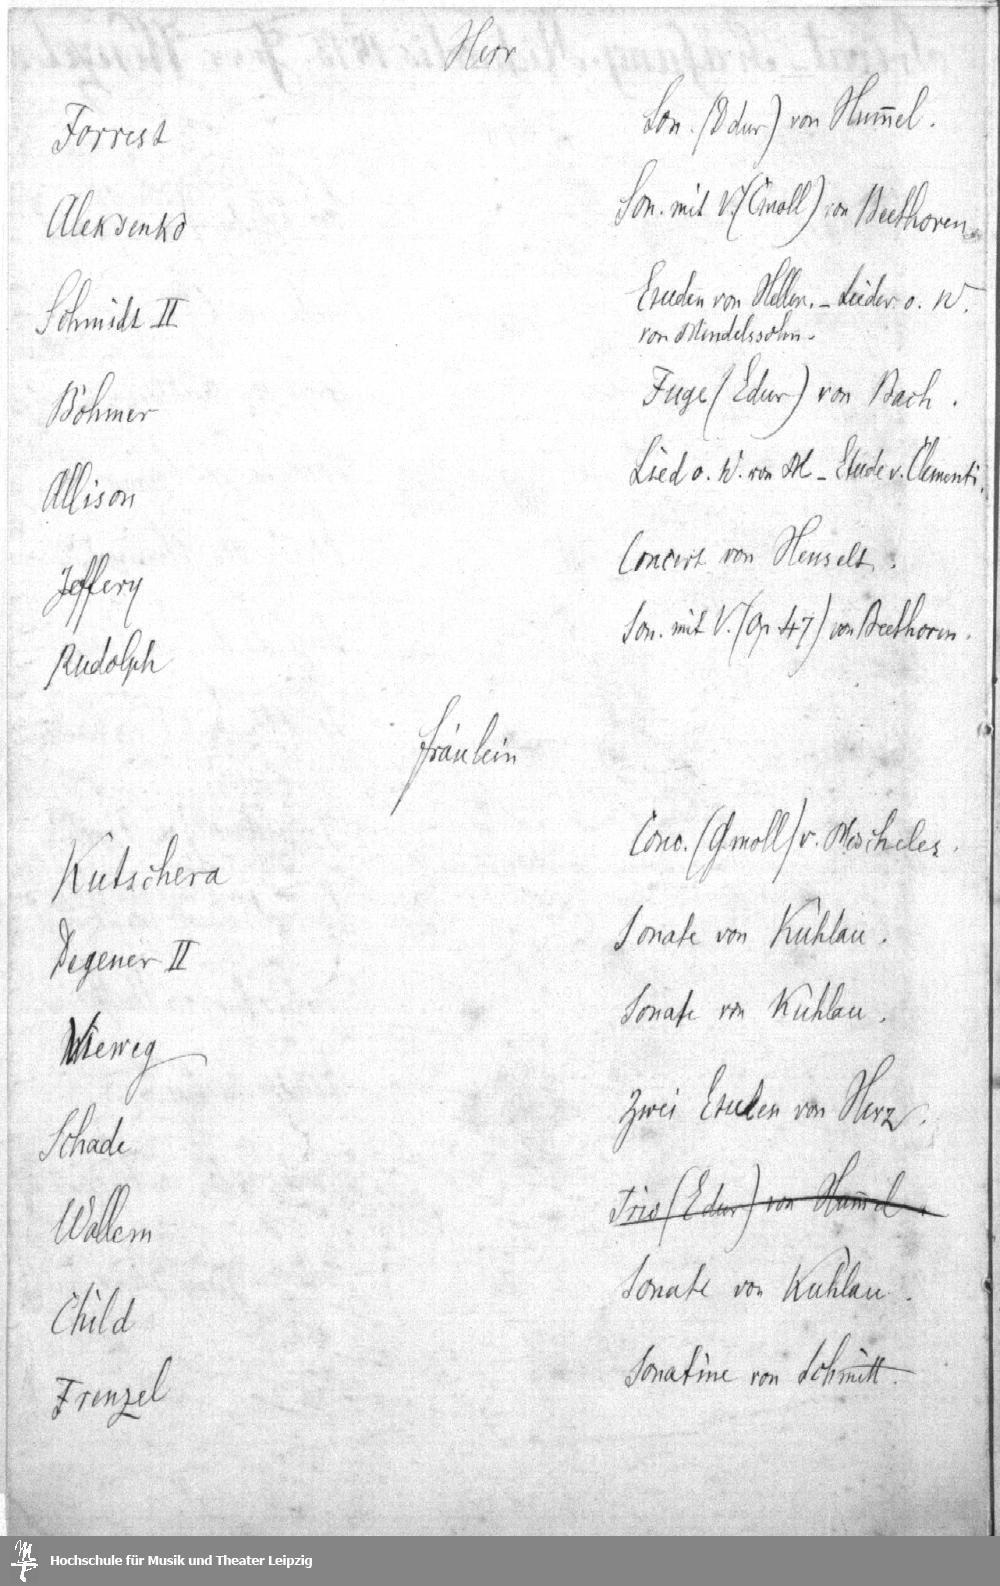 Herr
Forrest Son. (D dur) von Hum̅el.
Aleksenko Son. mit V. (Cmoll) von Beethoven.
Schmidt II Etuden von Heller. – Lieder o. W.
von Mendelssohn.
Böhmer Fuge (Edur) von Bach.
Allison Lied o. W. von M – Etude v. Clementi.
Jeffery Concert von Henselt.
Rudolph Son. mit V. (Op 47) von Beethoven.
Fräulein
Kutschera Conc. (Gmoll) v. Moscheles.
Degener II Sonate von Kuhlau.
Vieweg Sonate von Kuhlau.
Schade Zwei Etuden von Herz.
Wallem Trio (Edur) von Hum̅el.
Child Sonate von Kuhlau.
Frenzel Sonatine von Schmitt.
Hochschule für Musik und Theater Leipzig